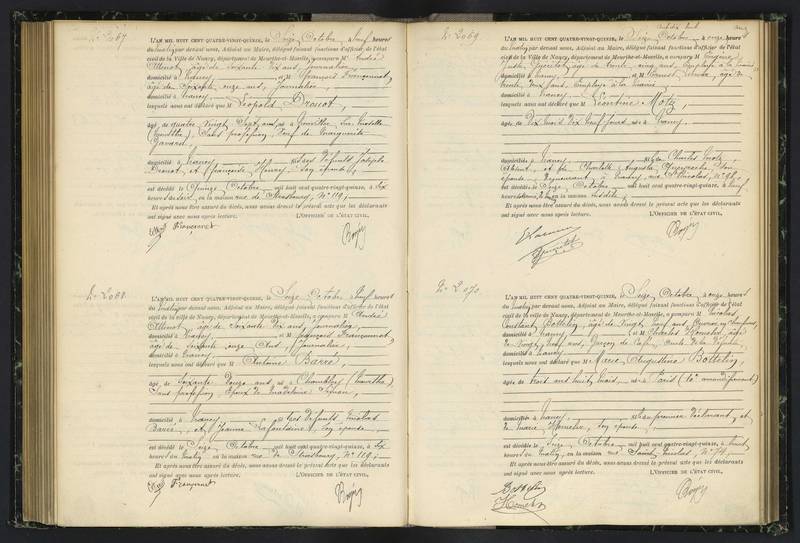 N° 2067
L'AN MIL HUIT CENT QUATRE-VINGT-QUINZE, le Seize Octobre, à neuf heures
du matin par devant nous, Adjoint au Maire, délégué faisant fonctions d'officier de l'état
civil de la Ville de Nancy, département de Meurthe-et-Moselle, a comparu M. André
âgé de soixante dix ans, journalier,
domicilié à Nancy et M. François Françonnet,
âgé de soixante onze ans, journalier,
domicilié à Nancy
lesquels nous ont déclaré que M Léopold Drouot,
âgé de quatre vingt sept ans, né à
(Meurthe), sans profession, veuf de Marguerite
domicilié à Nancy fils des défunts Joseph
Drouot et Françoise Henry, son épouse,
est décédé le Quinze Octobre mil huit cent quatre-vingt-quinze, à six
heures du soir, en la maison rue de Strasbourg, N° 119;
Et après nous être assuré du décès, nous avons dressé le présent acte que les déclarants
ont signé avec nous après lecture. L'OFFICIER DE L'ÉTAT CIVIL,
Françonnet
N° 2068
L'AN MIL HUIT CENT QUATRE-VINGT-QUINZE, le Seize Octobre, à neuf heures
du matin par devant nous, Adjoint au Maire, délégué faisant fonctions d'officier de l'état
civil de la Ville de Nancy, département de Meurthe-et-Moselle, a comparu M. André
âgé de soixante dix ans, journalier,
domicilié à Nancy et M. François Françonnet,
âgé de soixante onze ans, journalier,
domicilié à Nancy
lesquels nous ont déclaré que M Antoine Barré,
âgé de soixante douze ans, né à Chambley (Meurthe)
sans profession, époux de Madeleine
domicilié à Nancy fils des défunts Nicolas
Barré, et Jeanne son épouse,
est décédé le Seize Octobre mil huit cent quatre-vingt-quinze, à six
heures du matin, en la maison rue de Strasbourg, N° 119;
Et après nous être assuré du décès, nous avons dressé le présent acte que les déclarants
ont signé avec nous après lecture. L'OFFICIER DE L'ÉTAT CIVIL,
Françonnet
N° 2069
L'AN MIL HUIT CENT QUATRE-VINGT-QUINZE, le Seize Octobre, à onze heures
du matin par devant nous, Adjoint au Maire, délégué faisant fonctions d'officier de l'état
civil de la Ville de Nancy, département de Meurthe-et-Moselle, a comparu M. Eugène
âgé de trente cinq ans, employé à la mairie
domicilié à Nancy et M. âgé de
trente deux ans, employé à la mairie,
domicilié à Nancy
lesquels nous ont déclaré que M Léontine Motz,
âgée de dix mois dix neuf jours née à Nancy,
domiciliée à Nancy, fille Charles Motz,
absent et de Charlotte Augusta son
épouse à Nancy, rue St Nicolas, N° 96,
est décédée le Seize Octobre mil huit cent quatre-vingt-quinze, à neuf
heures du matin, en la maison susdite;
Et après nous être assuré du décès, nous avons dressé le présent acte que les déclarants
ont signé avec nous après lecture. L'OFFICIER DE L'ÉTAT CIVIL,
N° 2070
L'AN MIL HUIT CENT QUATRE-VINGT-QUINZE, le Seize Octobre, à onze heures
du matin par devant nous, Adjoint au Maire, délégué faisant fonctions d'officier de l'état
civil de la Ville de Nancy, département de Meurthe-et-Moselle, a comparu M. Nicolas
Constant âgé de vingt neuf ans,
domicilié à Nancy et M. Nicolas âgé
de vingt neuf ans, garçon de café,
domicilié à Nancy
lesquels nous ont déclaré que M Marie Augustine
âgée de trois ans huit mois née à Paris (10e arrondissement)
domiciliée à Nancy, fille du premier déclarant, et
de Marie son épouse,
est décédée le Seize Octobre mil huit cent quatre-vingt-quinze, à huit
heures du matin, en la maison rue Saint Nicolas, N° 74,
Et après nous être assuré du décès, nous avons dressé le présent acte que les déclarants
ont signé avec nous après lecture. L'OFFICIER DE L'ÉTAT CIVIL,